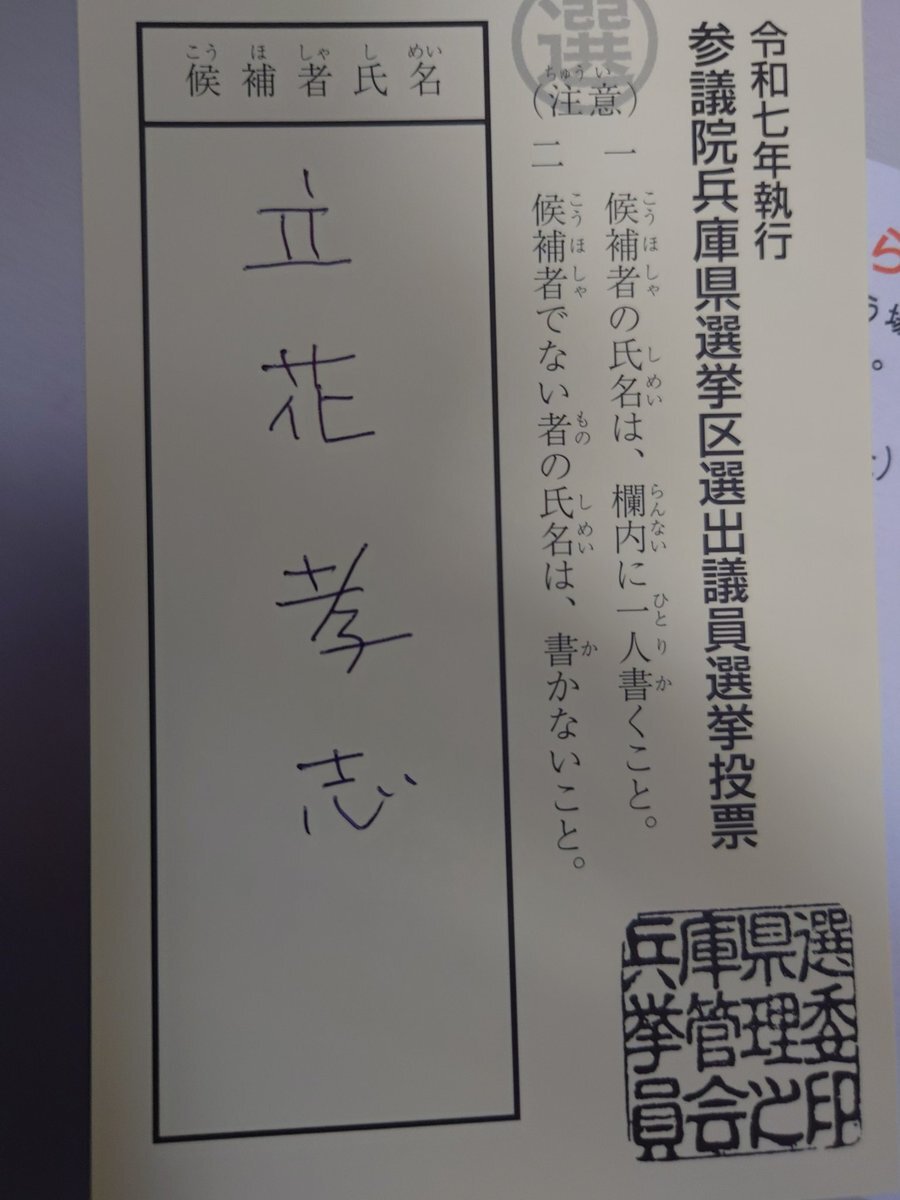 令和七年執行
参議院兵庫県選挙区選出議員選挙投票
選
(注意)
一 候補者の氏名は、欄内に一人書くこと。
二 候補者でない者の氏名は、書かないこと。
候補者氏名
立花孝志
兵庫県選
挙管理委
員会之印
ら